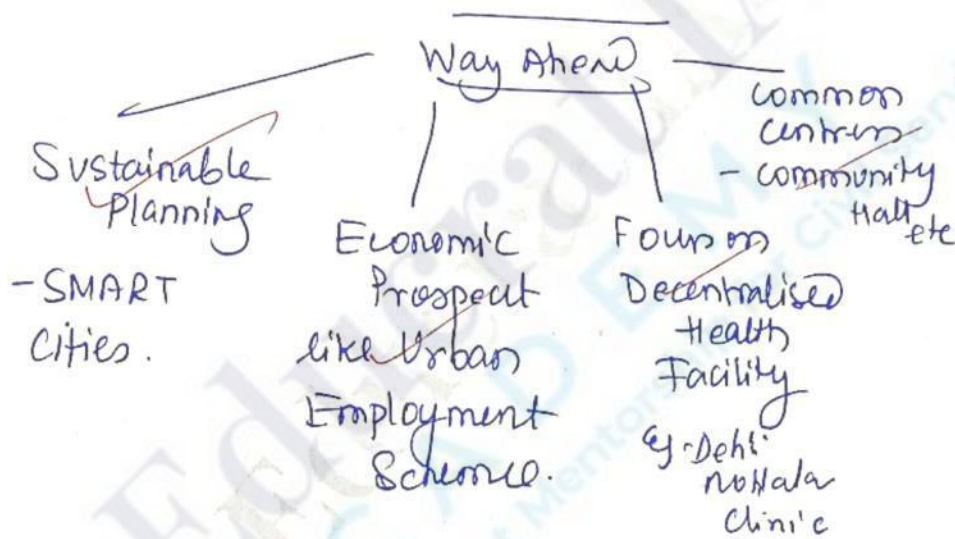 Way Ahead
Sustainable
Planning
- SMART
Cities.
Economic
Prospect
like Urban
Employment
Scheme.
Focus on
Decentralised
Health
Facility
eg - Delhi
Mohalla
Clinic
Common
Centres
- Community
Hall etc